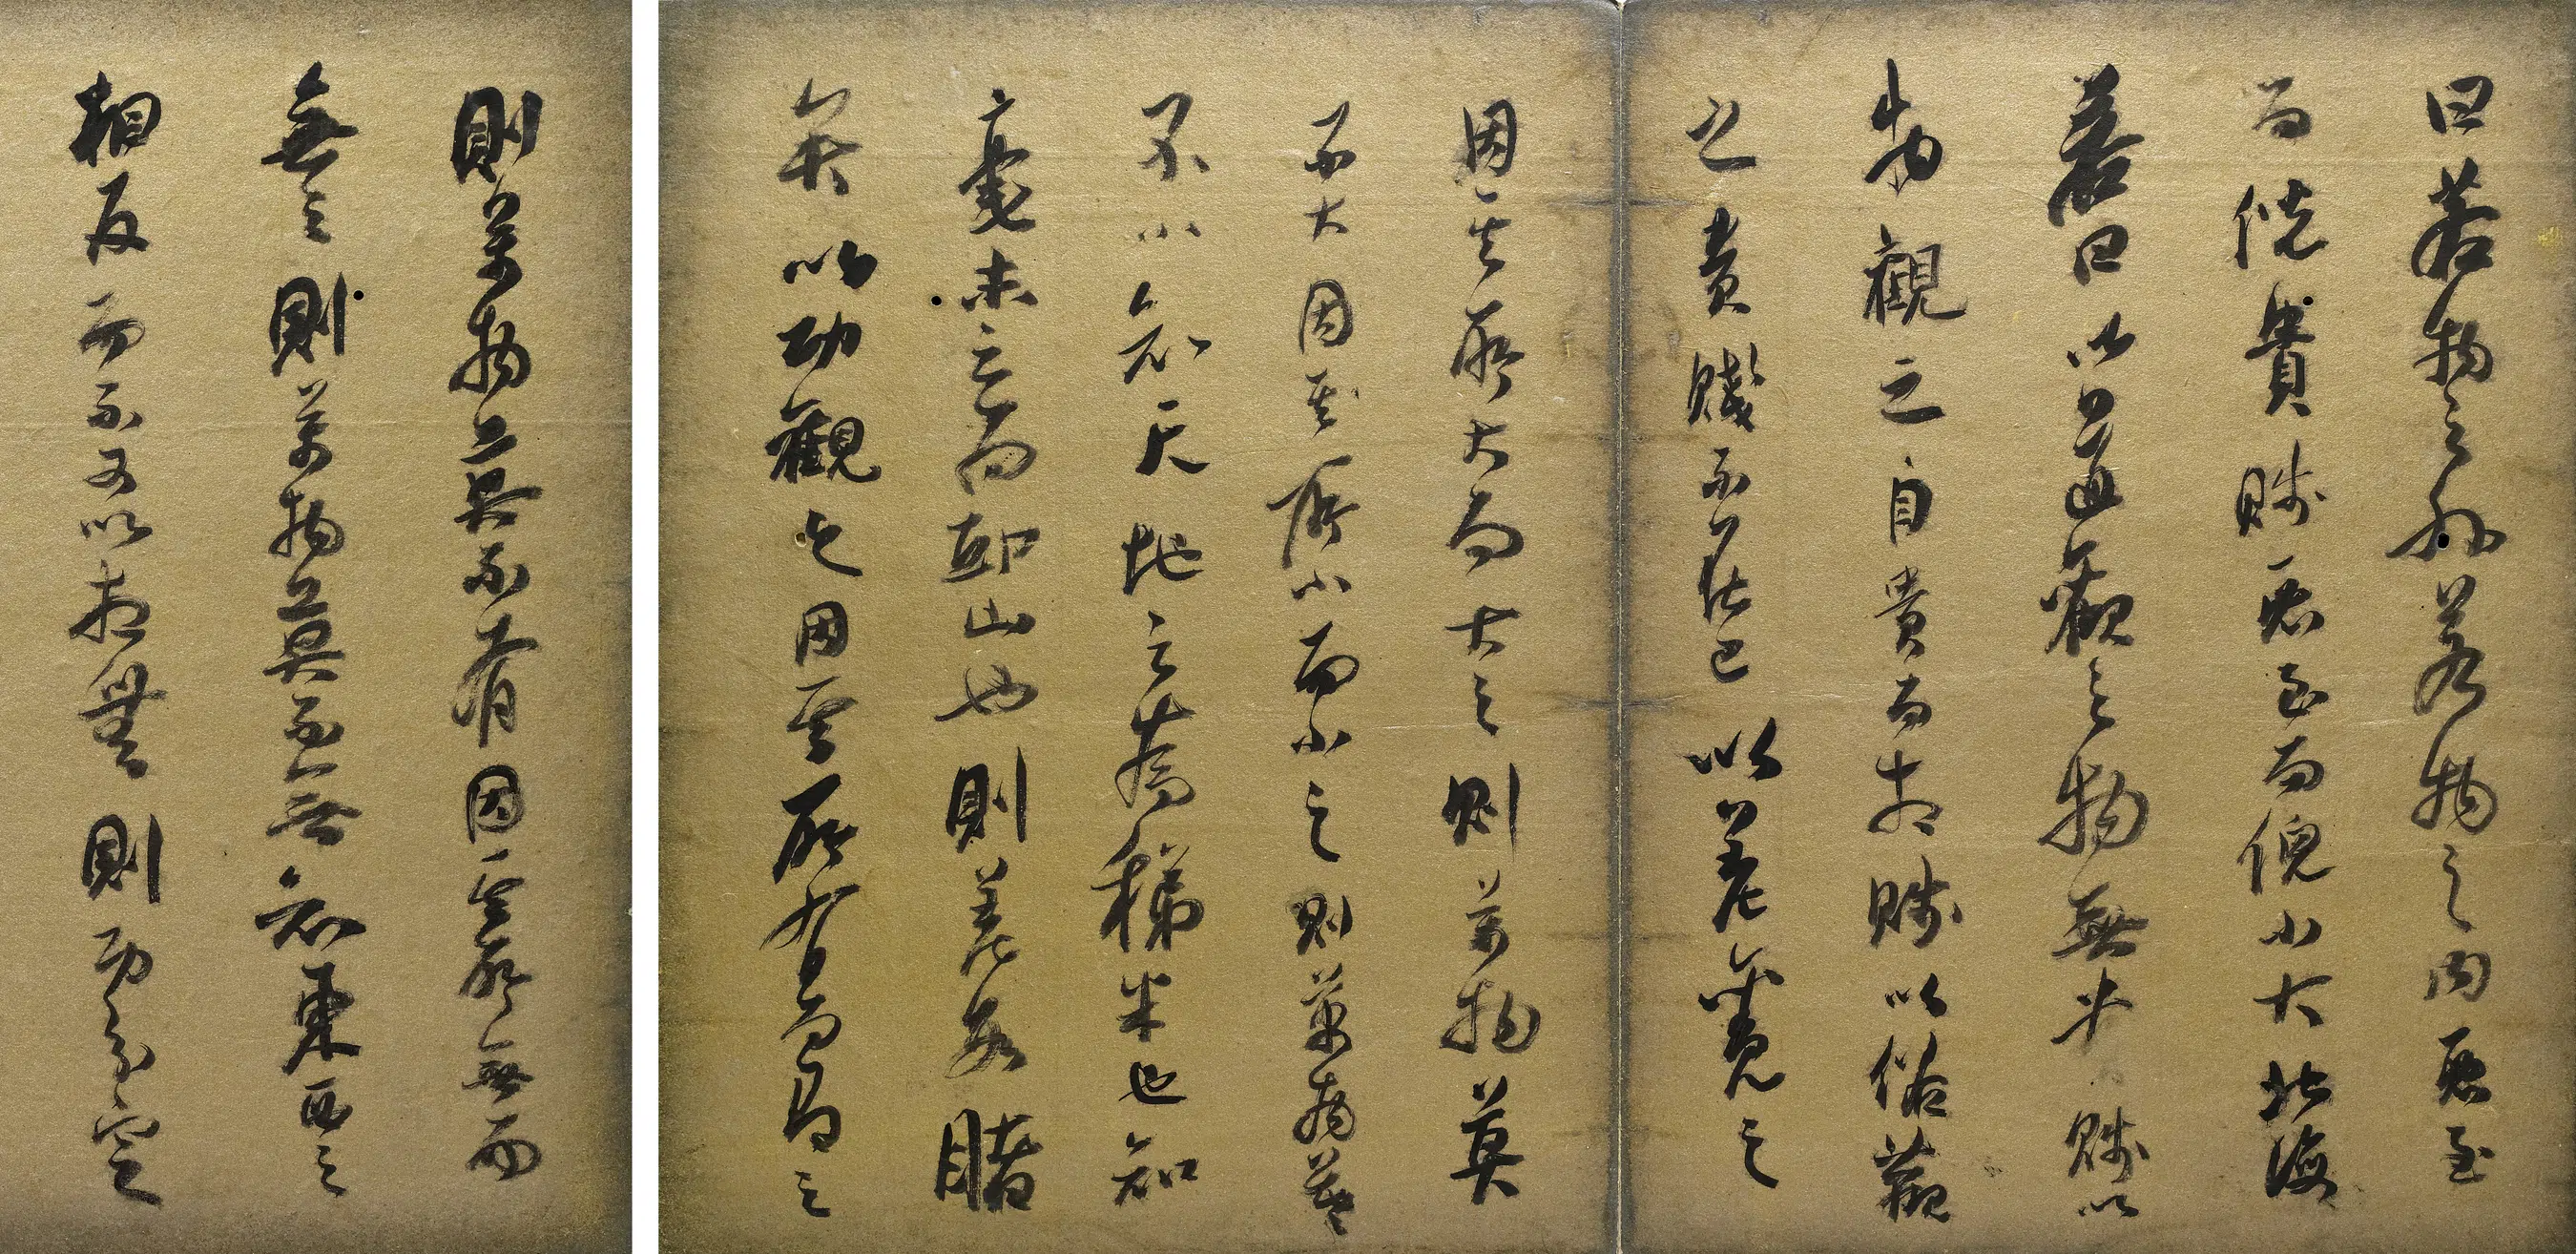 曰若物之外若物之内惡至
而倪貴賤惡至而倪小大北海
若曰以道觀之物無貴賤以
物觀之自貴而相賤以俗觀
之貴賤不在己以差觀之
因其所大而大之則萬物莫
不大因其所小而小之則萬物莫
不小知天地之為稊米也知
毫末之為邱山也則差數睹
矣以功觀之因其所有而有之
則萬物莫不有因其所無而
無之則萬物莫不無知東西之
相反而不可以相無則功分定